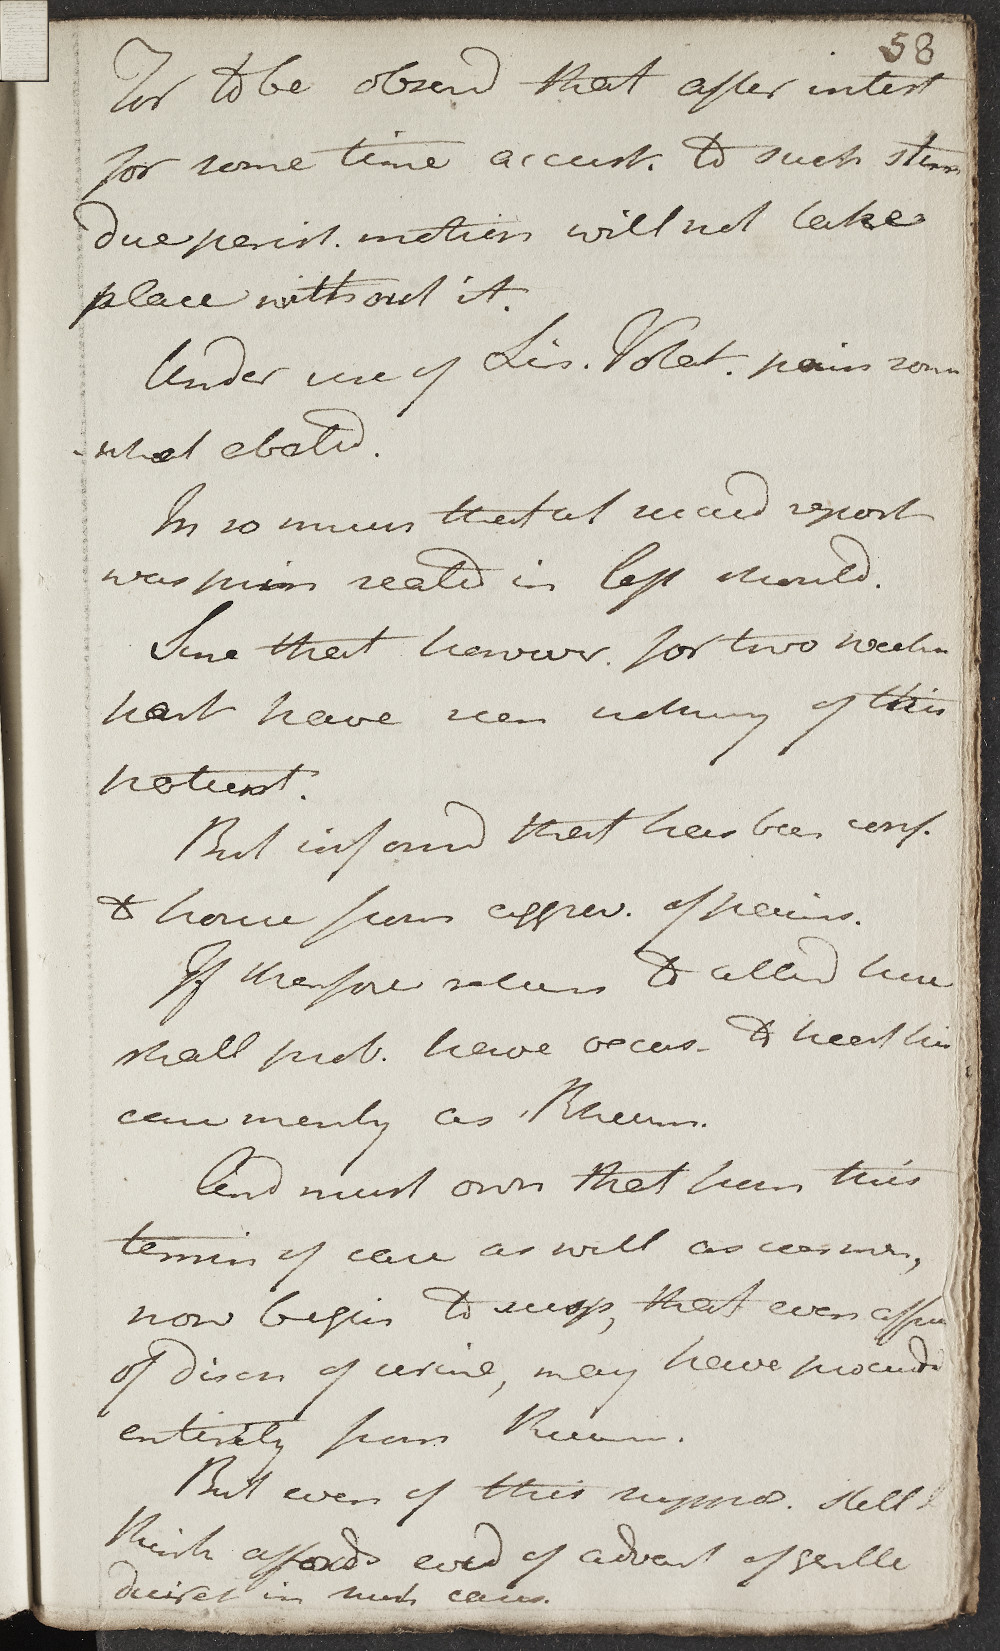 58
For to be observd that after intest
for some time accust. to such stim
due perist. motion will not take
place without it.
Under use of Lin. Volat. pain some
-what abated.
In so much that at second report
was pain seated in left should.
Since that however. for two weeks
past have seen nothing of this
patient.
But informd that has been conf.
to house from aggrav. of pains.
If therefore returns to attend here
shall prob. have occas. to treat his
case merely as Rheum.
And must own that from this
termin of case as well as
now begin to susp, that even
of disch of urine, may have proceeded
entirely from Rheum.
But even of this suppos. still I
think affords evid of advant of gentle
diuret in such cases.